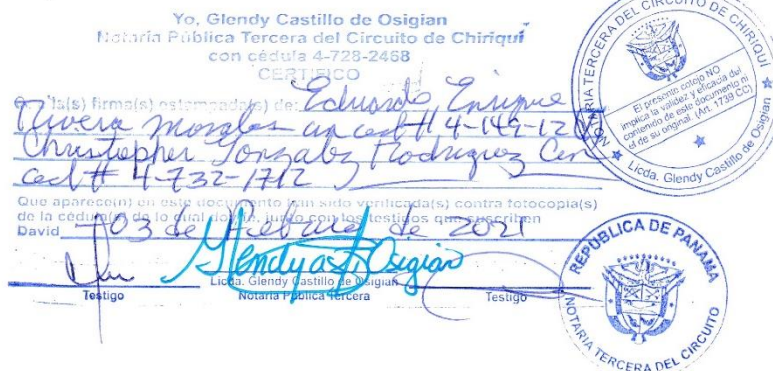 Yo, Glendy Castillo de Osigian
Notaria Pública Tercera del Circuito de Chiriquí
con cédula 4-728-2468
CERTIFICO
la(s) firma(s) estampada(s) de: Eduardo Enrique
Rivera Morales con ced # 4-149-12
Christopher Gonzalez Rodriguez con
ced # 4-732-1712
Que aparece(n) en este documento han sido verificada(s) contra fotocopia(s)
de la cédula(s) de lo cual doy fe, junto con los testigos que suscriben
David 03 de de 2021
Glendy Osigian
Testigo
Licda. Glendy Castillo de Osigian
Notaria Pública Tercera
Testigo
NOTARIA TERCERA DEL CIRCUITO DE CHIRIQUÍ
El presente cotejo NO
implica la validez y eficacia del
contenido de este documento ni
el de su original. (Art. 1739 CC)
Licda. Glendy Castillo de Osigian
REPÚBLICA DE PANAMÁ
NOTARIA TERCERA DEL CIRCUITO